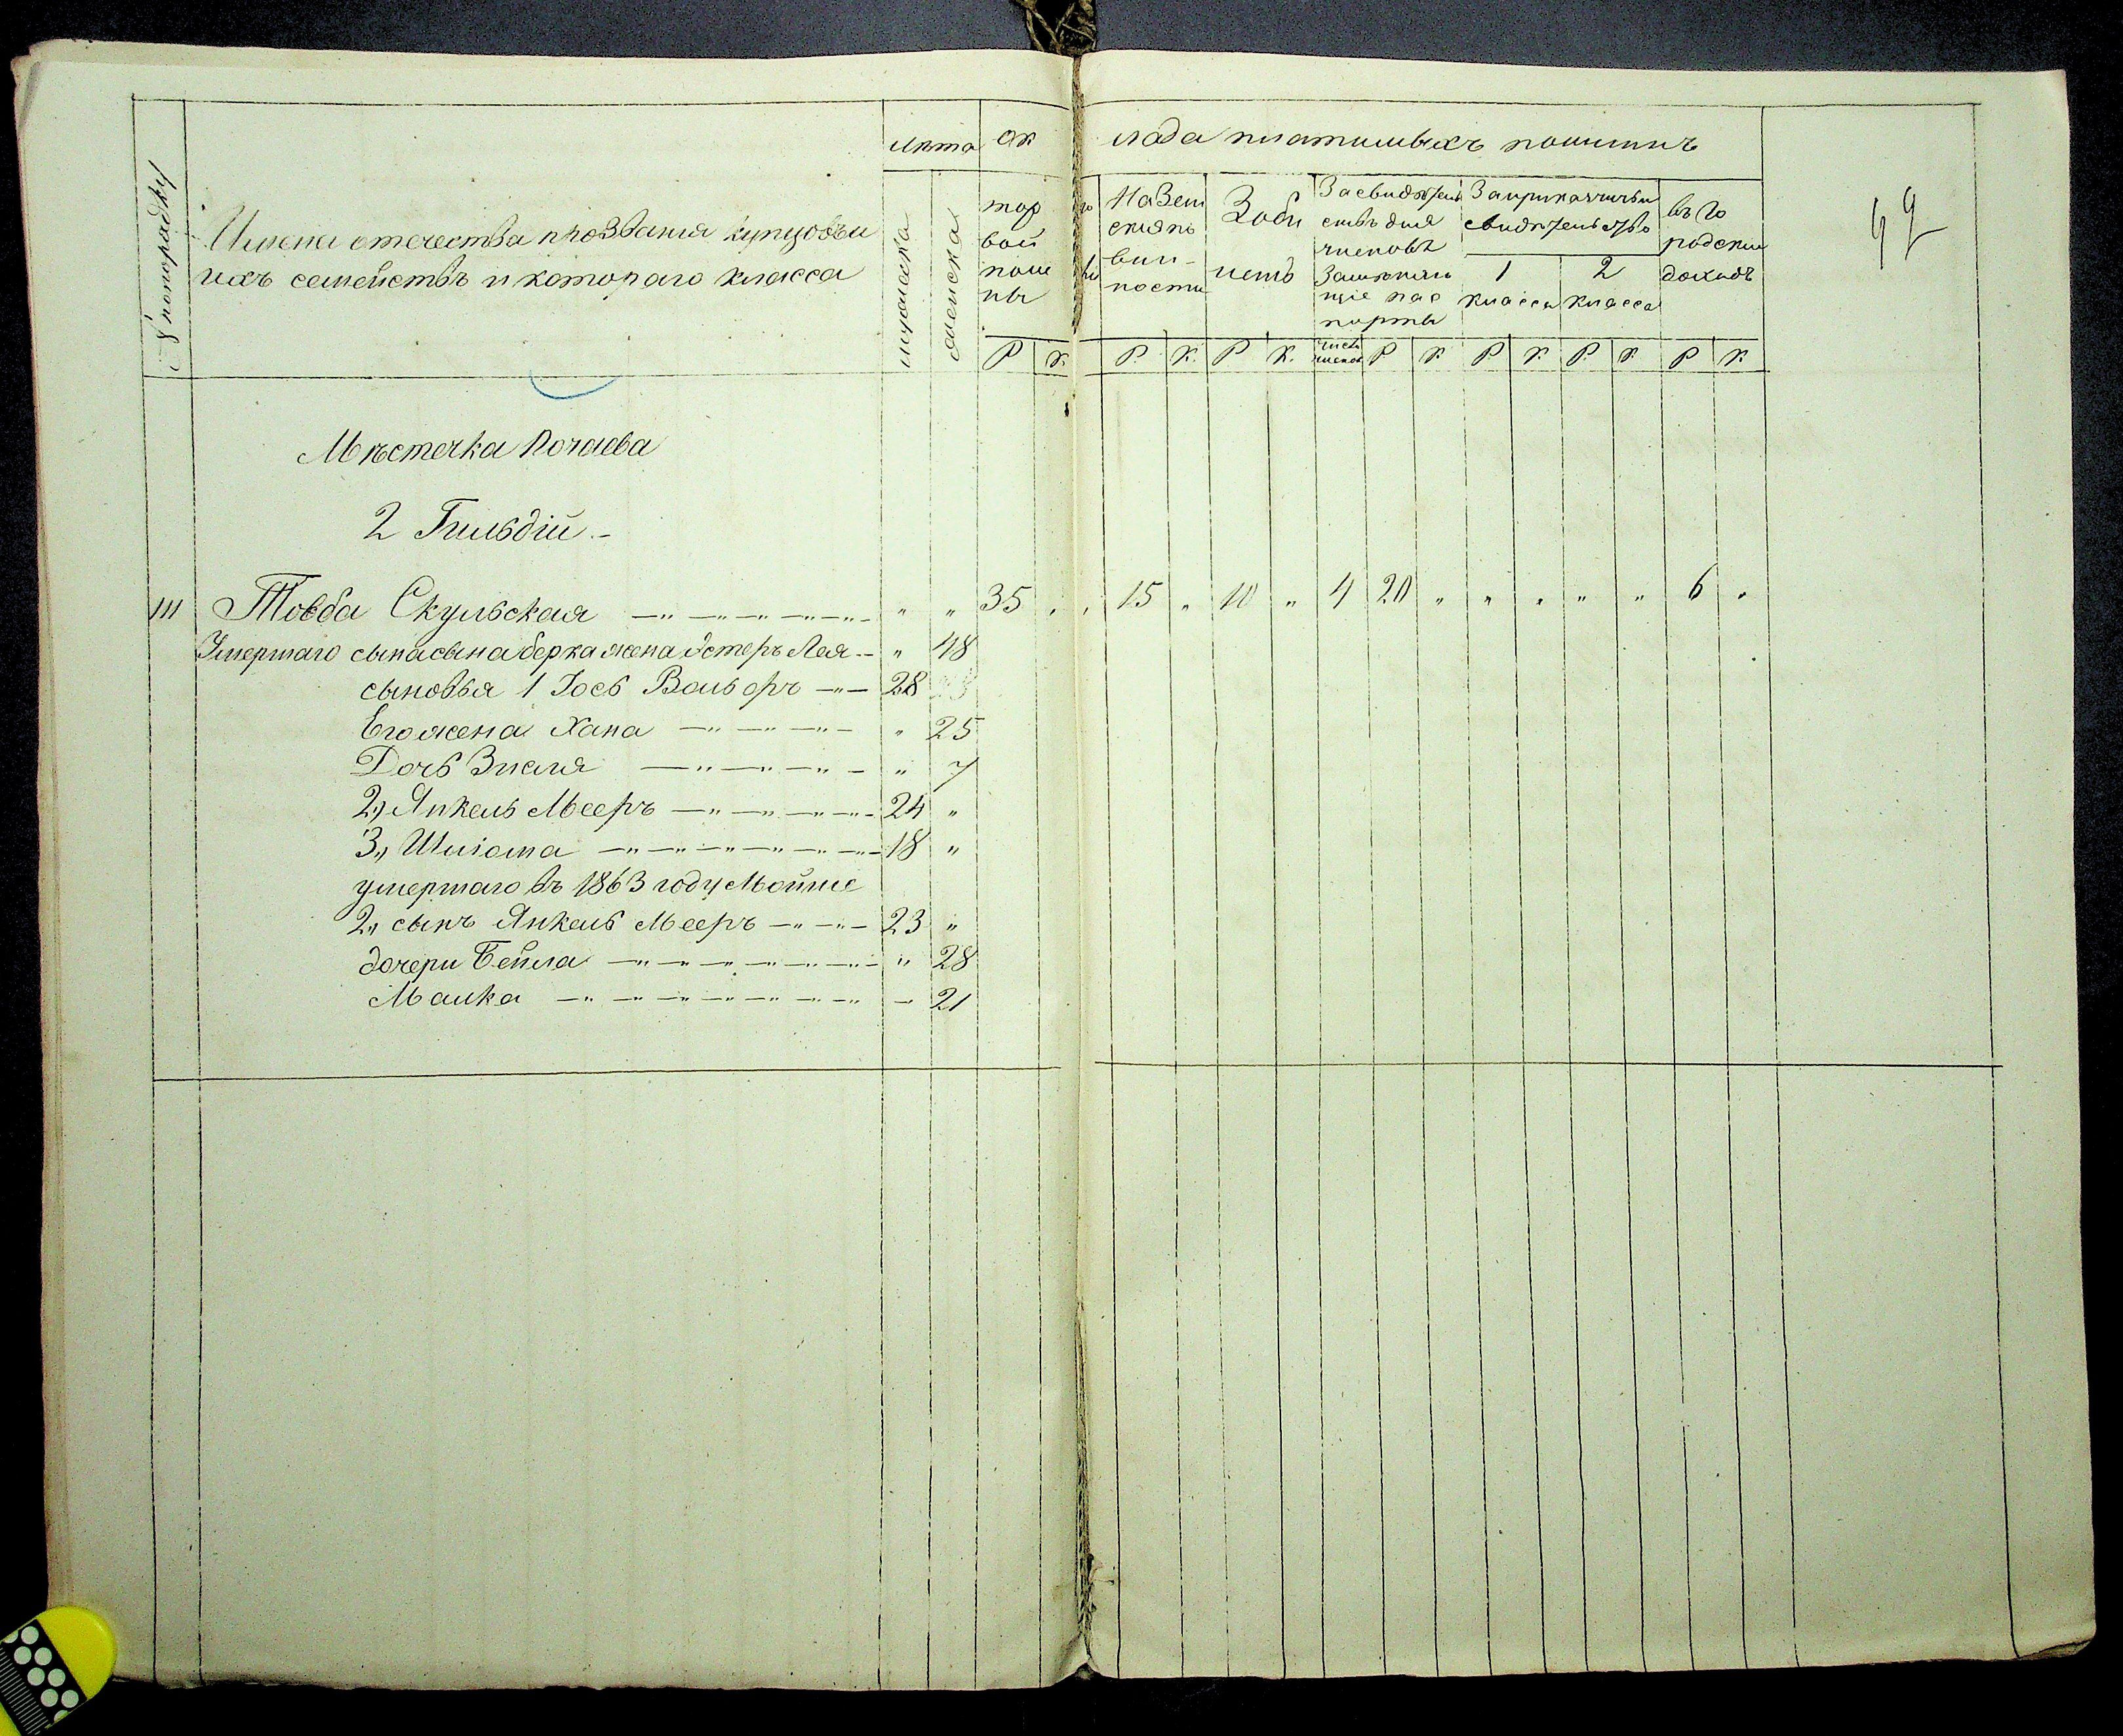 № попорядку
Имена отечества прозвания купцовъ и
ихъ семействъ и котораго класса
лѣта
мужеска
женска
ок
лада платимыхъ пошлинъ
тор го
вой
пош ли
ны
На Зем
скія по
вин-
ности
Зоби
летъ
За свидѣтель
ствъ для
членовъ
Замѣняю
щіе пас
порты
За приказчичьи
свидѣтельство
1
класса
2
класса
въ Го
родскіи
доходъ
Р К. Р К. Р К. число членов Р К Р К Р К Р К
42
Мѣстечка Почаева
2 Гильдіи -
111 Товба Скульская " " 35 " 15 " 10 " 4 20 " " " " " 6 "
Умершаго сына сына Берка жена Эстеръ Лея " 48
сыновья 1 Іось Вольоръ 28
Его жена Хана " 25
Дочь Знамя " 7
2, Янкель Мееръ 24 "
3, Шліома 18 "
умершаго въ 1863 году Мойше
2, сынъ Янкель Мееръ 23 "
дочери Бейла " 28
Малка - 21